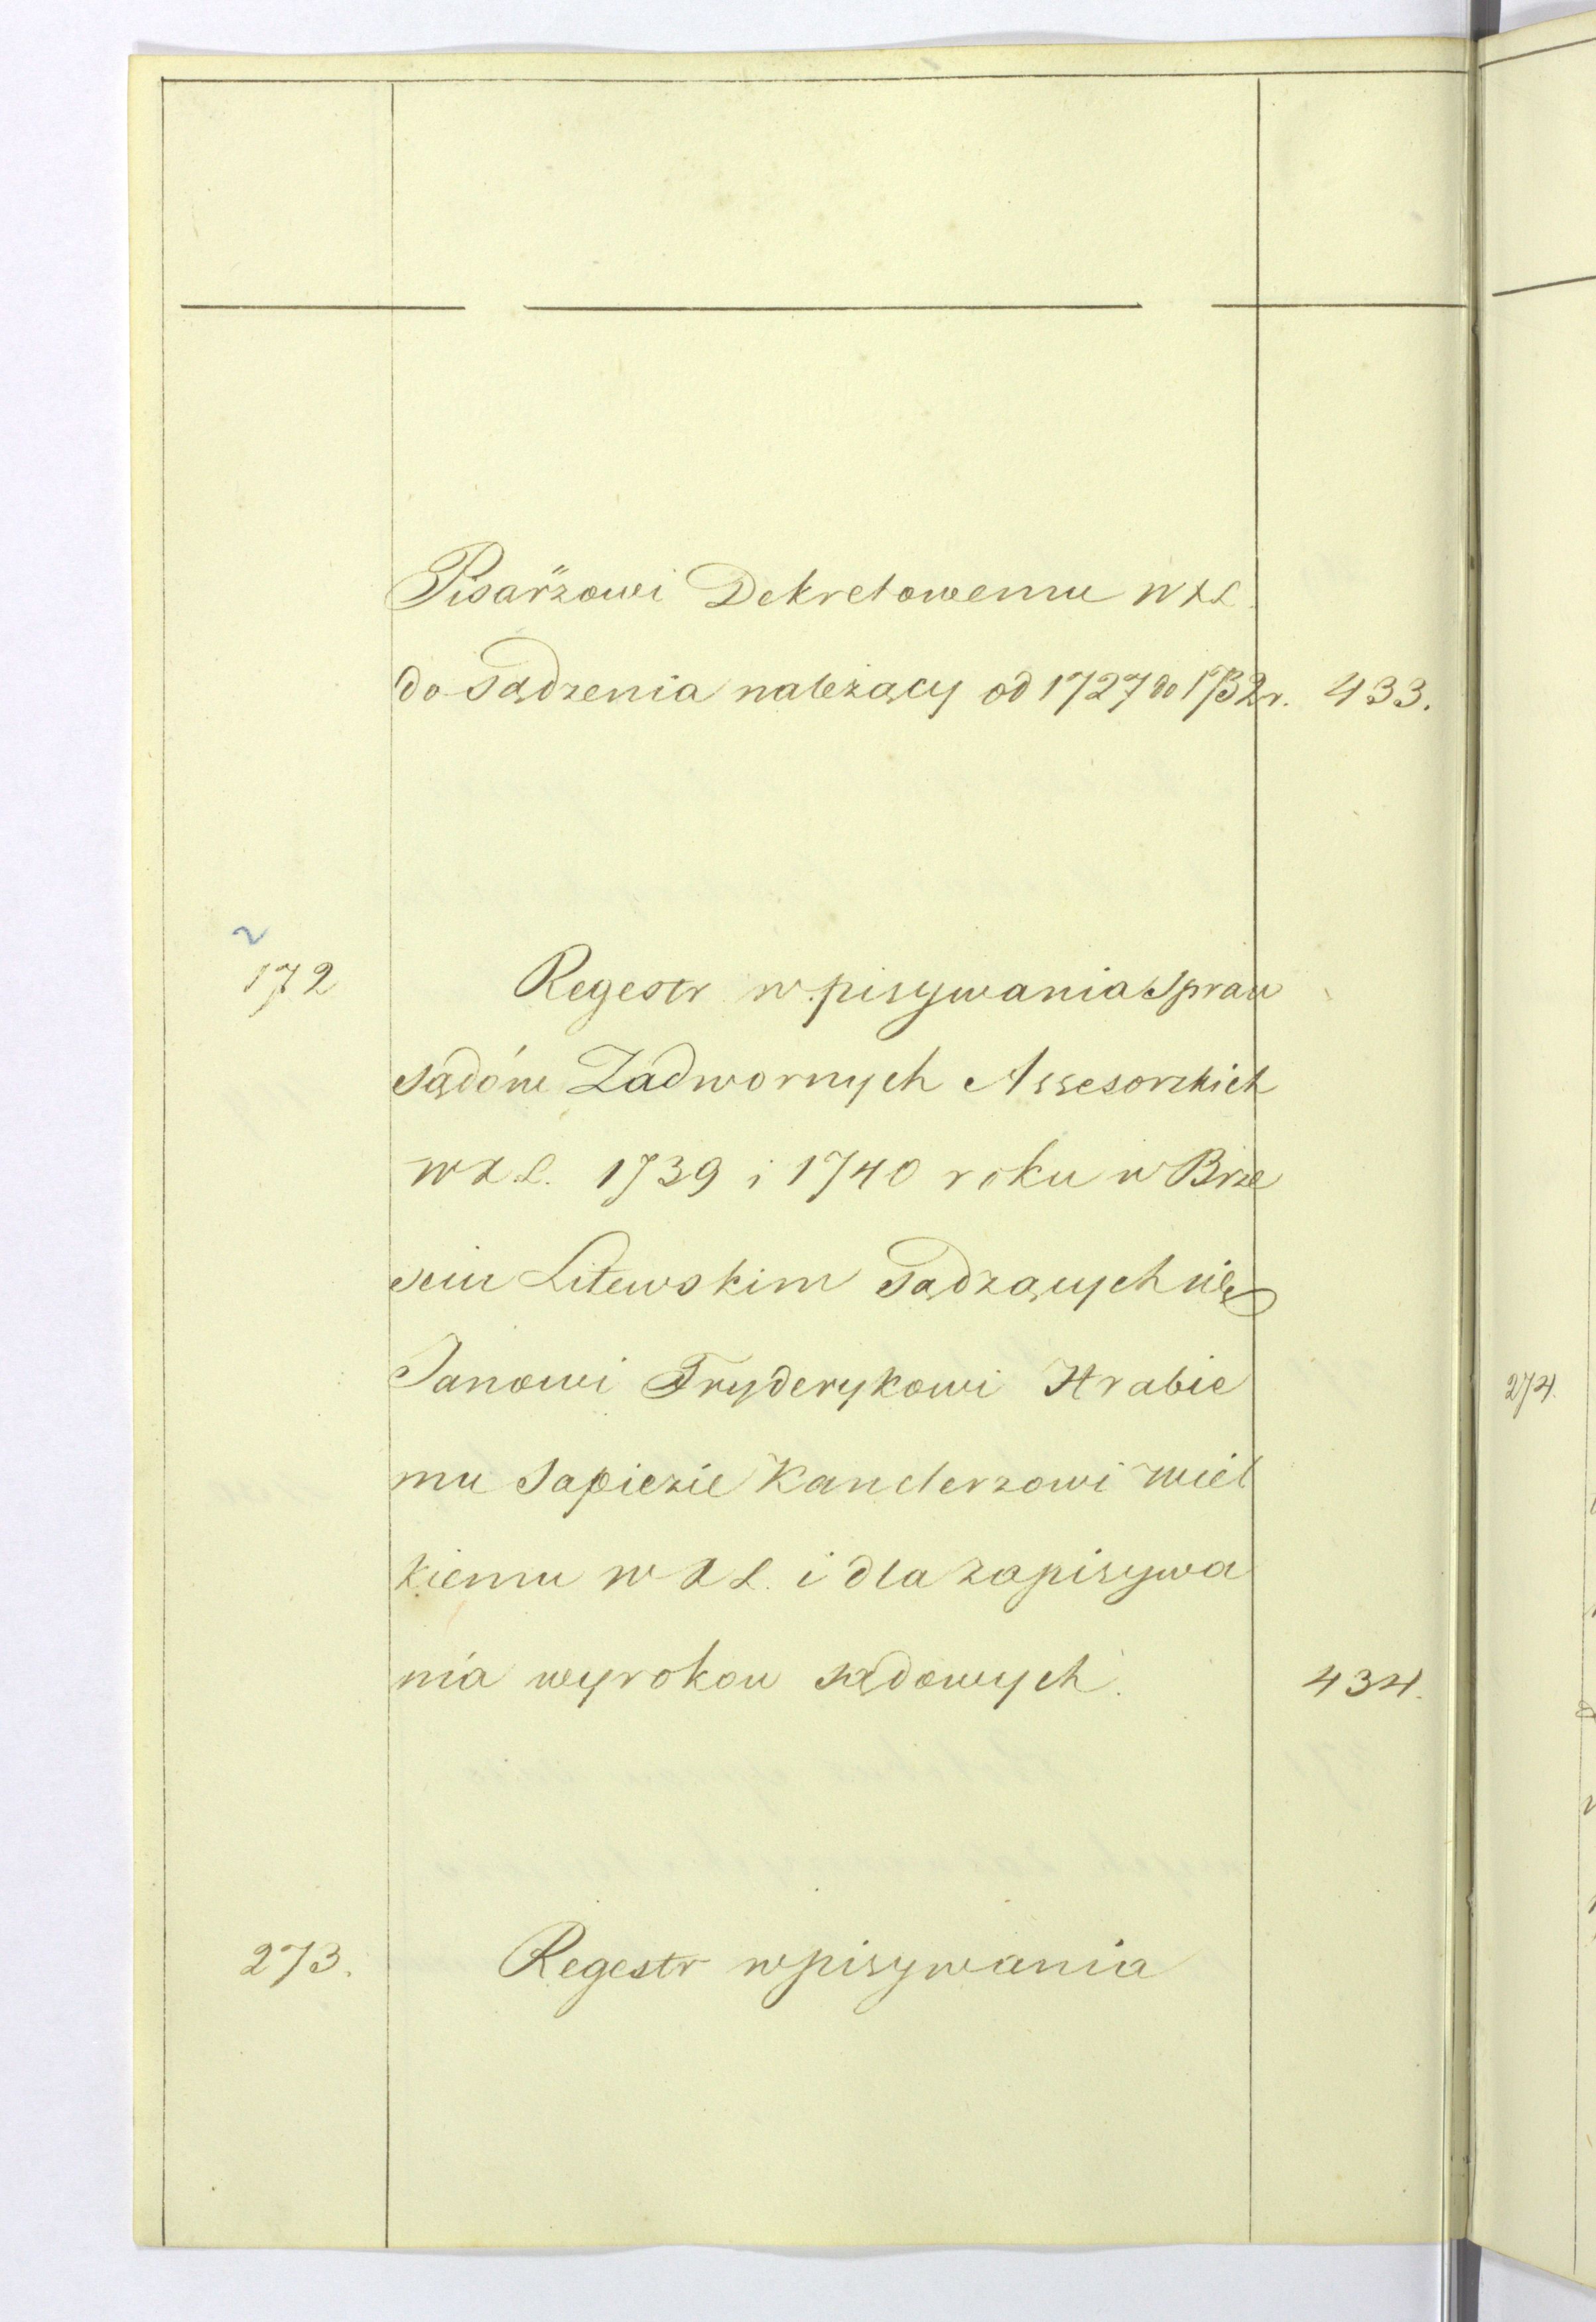 Pisarzowi Dekretowemu W X L.
do Sądzenia należący od 1727 do 1732 r. 433.
2
172 Regestr wpisywania Spraw
sądów Zadwornych Assesorskich
W X. L. 1739 i 1740 roku w Brze
sciu Litewskim Sądzących się
Janowi Fryderykowi Hrabie
mu Sapiezie Kanclerzowi Wiel
kiemu W X L. i dla zapisywa
nia wyrokow sądowych. 434.
273. Regestr wpisywania
274.